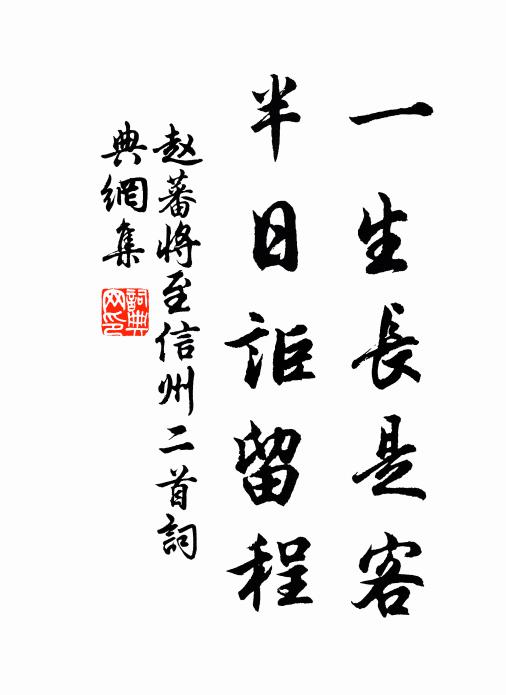 一生長是客
半日詎留程
赵蕃将至信州二首詞
典網集
詞典网印